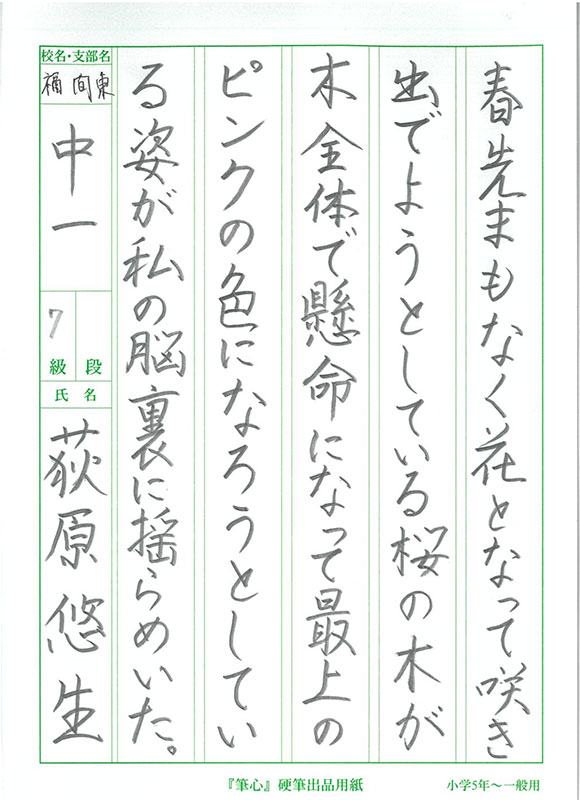 春先まもなく花となって咲き
出でようとしている桜の木が
木全体で懸命になって最上の
ピンクの色になろうとしてい
る姿が私の脳裏に揺らめいた。
校名・支部名
桶間東
中一
7
級 段
氏 名
荻原悠生
『筆心』硬筆出品用紙
小学5年〜一般用